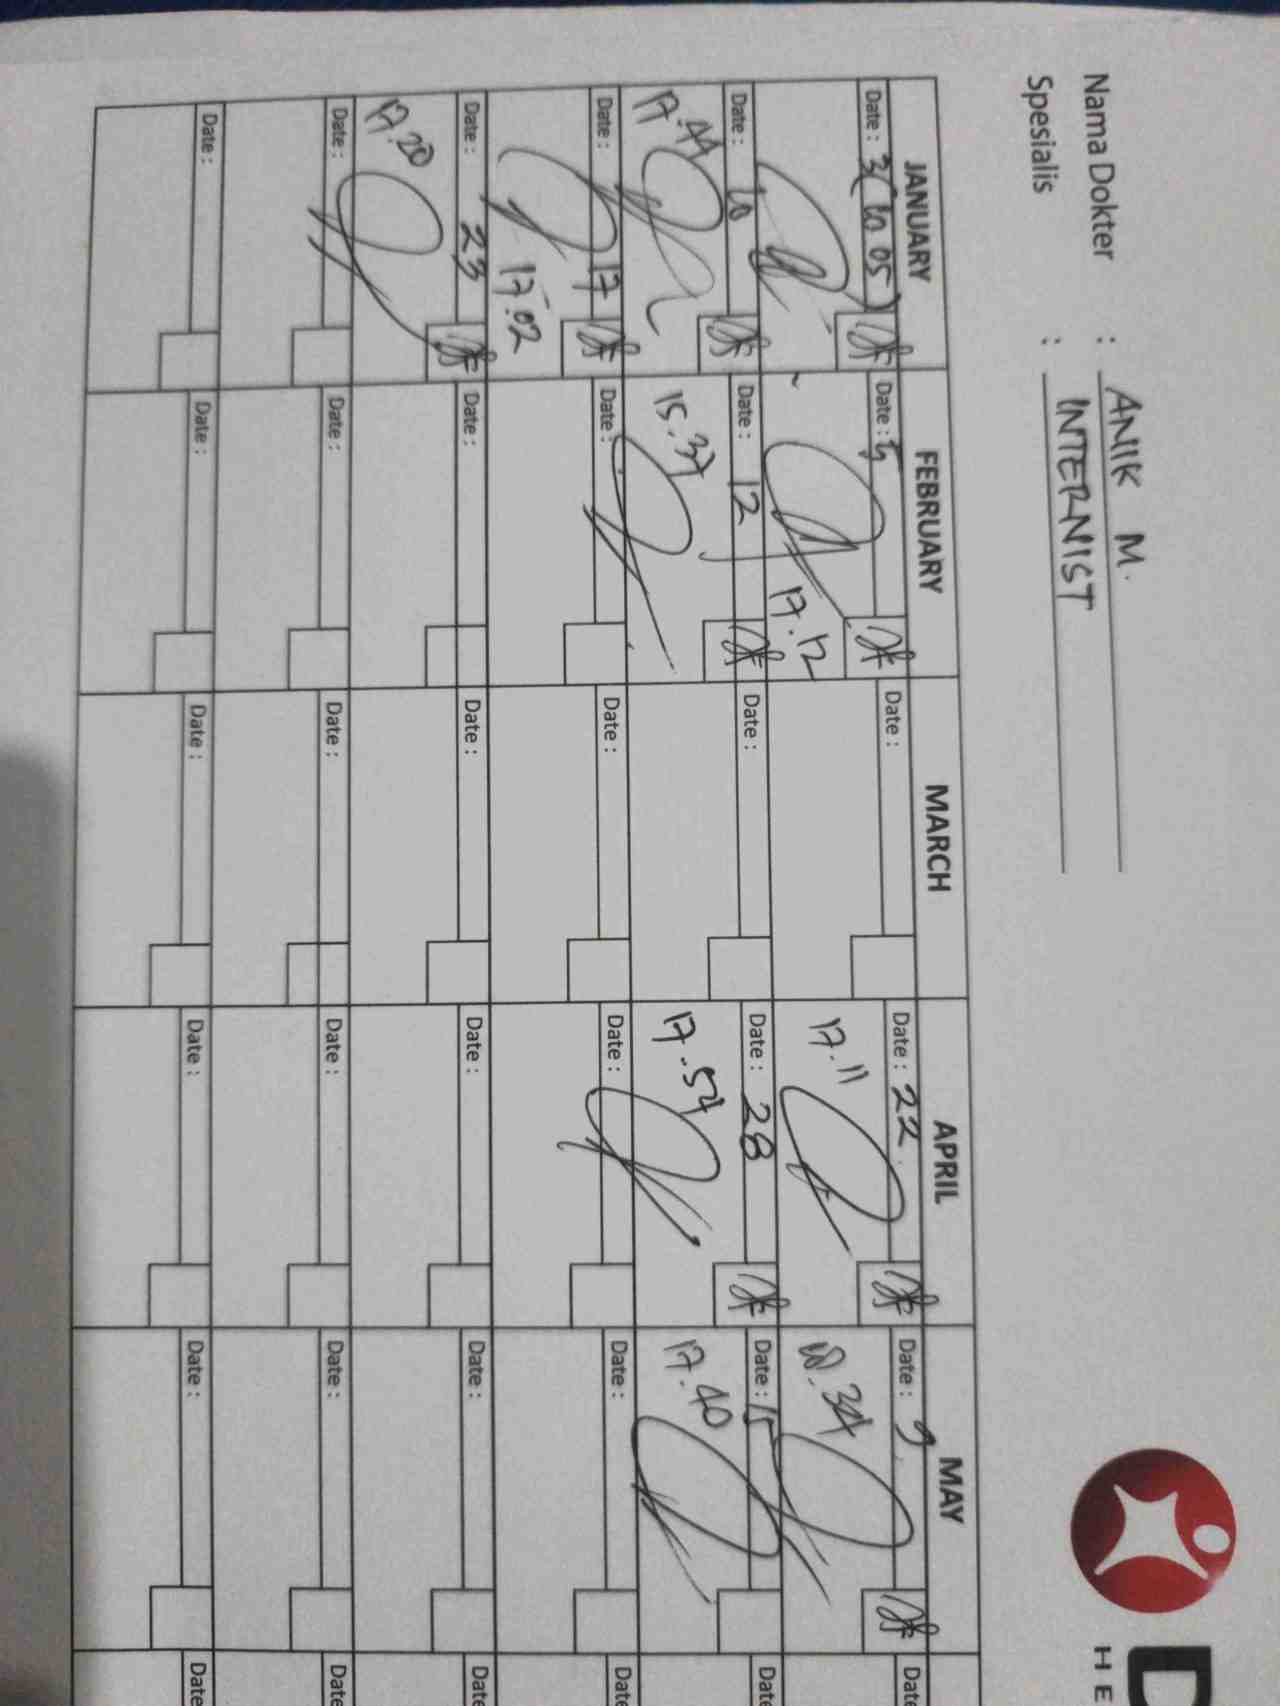 Nama Dokter : ANIK M.
Spesialis : INTERNIST
D
HE
JANUARY FEBRUARY MARCH APRIL MAY
Date : 3 (10 05) Date : 5 Date : Date : 22 Date : 9 Date
17.12 17.11 18.34
Date : 10 Date : 12 Date : Date : 28 Date : 15 Date
17.44 15.37 17.54 17.40
Date : 17 Date : Date : Date : Date : Date
17.02
Date : 23 Date : Date : Date : Date : Date
17.20
Date : Date : Date : Date : Date : Date
Date : Date : Date : Date : Date : Date